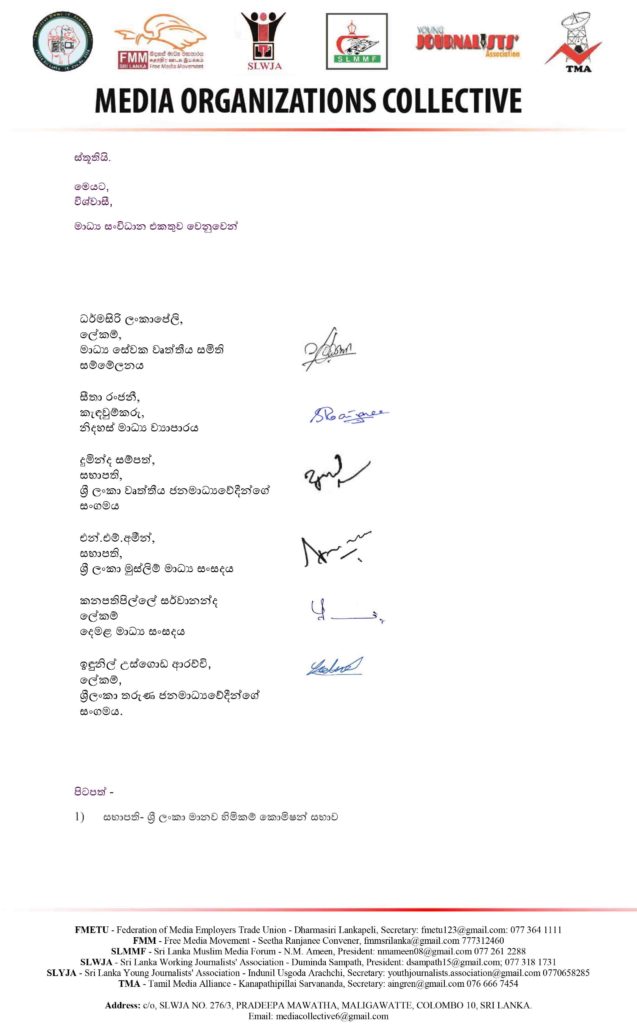 FMM
SRI LANKA
නිදහස් මාධ්‍ය ව්‍යාපාරය
சுதந்திர ஊடக இயக்கம்
Free Media Movement
SLWJA
SLMMF
YOUNG
JOURNALISTS'
Association
TMA
MEDIA ORGANIZATIONS COLLECTIVE
ස්තූතියි.
මෙයට,
විශ්වාසී,
මාධ්‍ය සංවිධාන එකතුව වෙනුවෙන්
ධර්මසිරි ලංකාපේලි,
ලේකම්,
මාධ්‍ය සේවක වෘත්තීය සමිති
සම්මේලනය
සීතා රංජනී,
කැඳවුම්කරු,
නිදහස් මාධ්‍ය ව්‍යාපාරය
දුමින්ද සම්පත්,
සභාපති,
ශ්‍රී ලංකා වෘත්තීය ජනමාධ්‍යවේදීන්ගේ
සංගමය
එන්.එම්.අමීන්,
සභාපති,
ශ්‍රී ලංකා මුස්ලිම් මාධ්‍ය සංසදය
කනපතිපිල්ලේ සර්වානන්ද
ලේකම්
දෙමළ මාධ්‍ය සංසදය
ඉඳුනිල් උස්ගොඩ ආරච්චි,
ලේකම්,
ශ්‍රීලංකා තරුණ ජනමාධ්‍යවේදීන්ගේ
සංගමය.
පිටපත් -
1) සභාපති- ශ්‍රී ලංකා මානව හිමිකම් කොමිෂන් සභාව
FMETU - Federation of Media Employers Trade Union - Dharmasiri Lankapeli, Secretary: fmetu123@gmail.com: 077 364 1111
FMM - Free Media Movement - Seetha Ranjanee Convener, fmmsrilanka@gmail.com 777312460
SLMMF - Sri Lanka Muslim Media Forum - N.M. Ameen, President: nmameen08@gmail.com 077 261 2288
SLWJA - Sri Lanka Working Journalists' Association - Duminda Sampath, President: dsampath15@gmail.com; 077 318 1731
SLYJA - Sri Lanka Young Journalists' Association - Indunil Usgoda Arachchi, Secretary: youthjournalists.association@gmail.com 0770658285
TMA - Tamil Media Alliance - Kanapathipillai Sarvananda, Secretary: aingren@gmail.com 076 666 7454
Address: c/o, SLWJA NO. 276/3, PRADEEPA MAWATHA, MALIGAWATTE, COLOMBO 10, SRI LANKA.
Email: mediacollective6@gmail.com